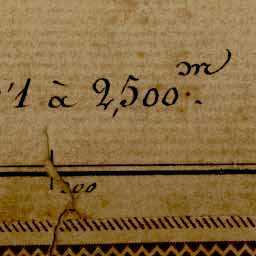 '1 à 2,500.m
200